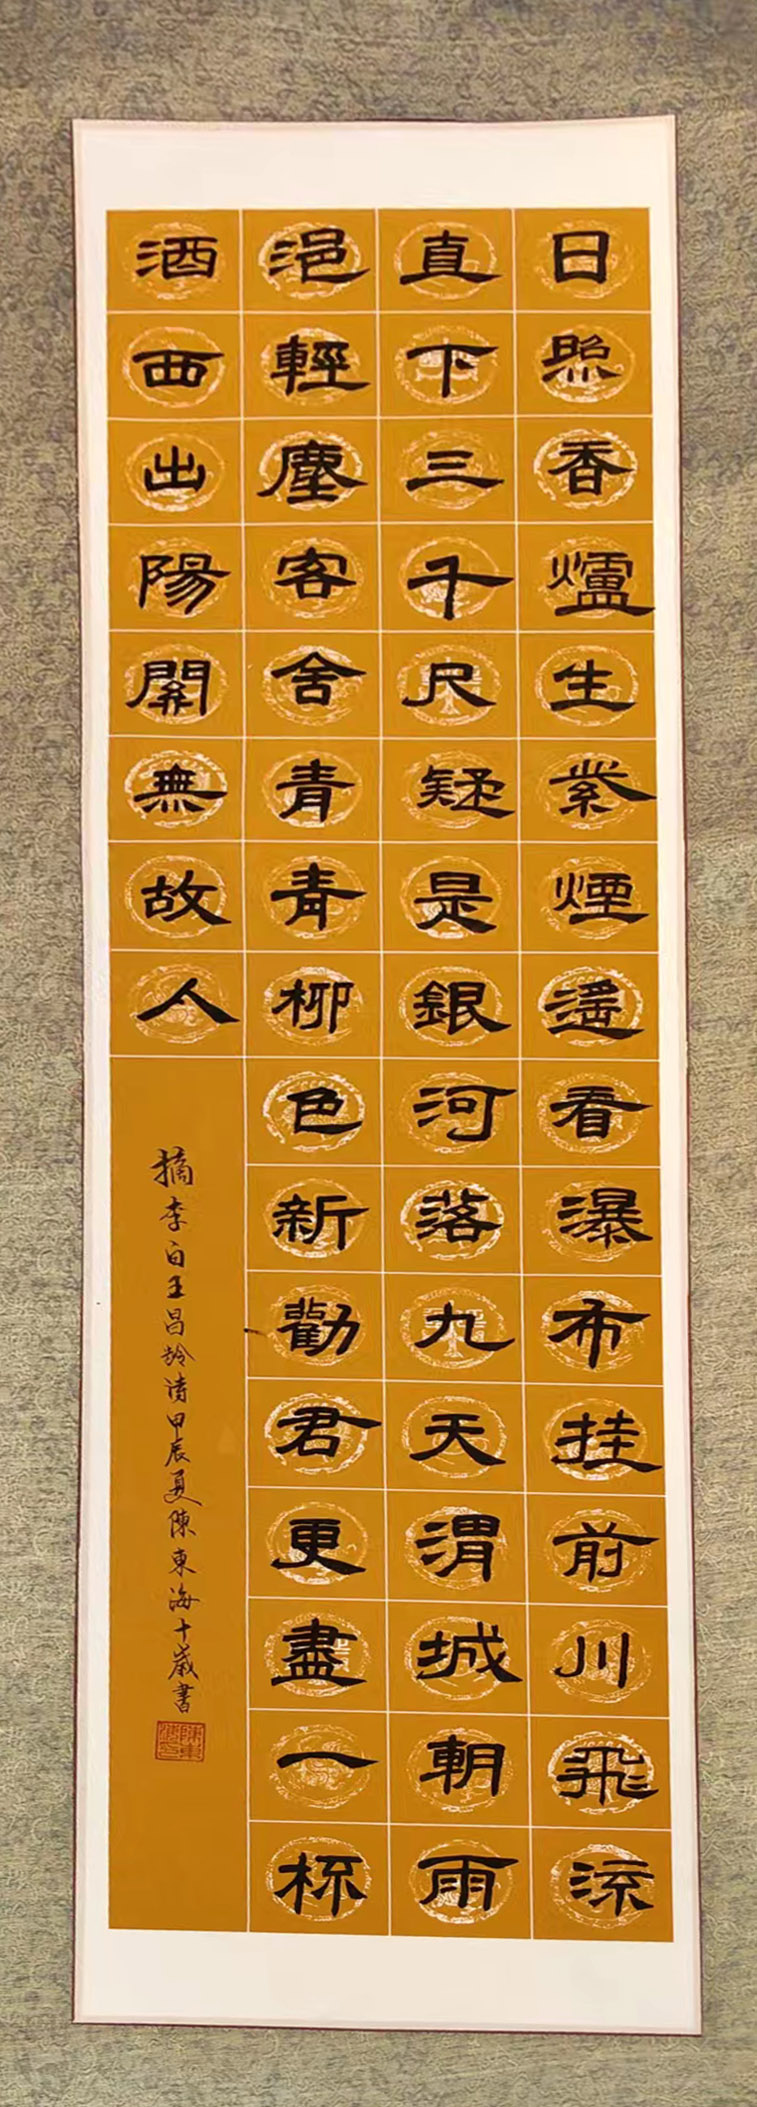 日照香爐生紫煙遙看瀑布挂前川飛流
直下三千尺疑是銀河落九天渭城朝雨
浥輕塵客舍青青柳色新勸君更盡一杯
酒西出陽關無故人
摘李白王昌齡詩甲辰夏陳東海十歲書